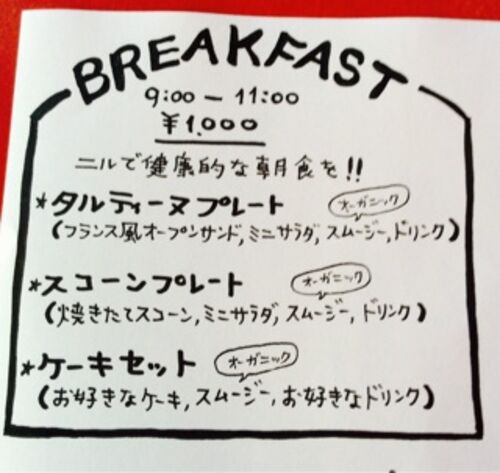 BREAKFAST
9:00 - 11:00
¥1,000
ニルで健康的な朝食を!!
*タルティーヌプレート オーガニック
(フランス風オープンサンド, ミニサラダ, スムージー, ドリンク)
*スコーンプレート オーガニック
(焼きたてスコーン, ミニサラダ, スムージー, ドリンク)
*ケーキセット オーガニック
(お好きなケーキ, スムージー, お好きなドリンク)